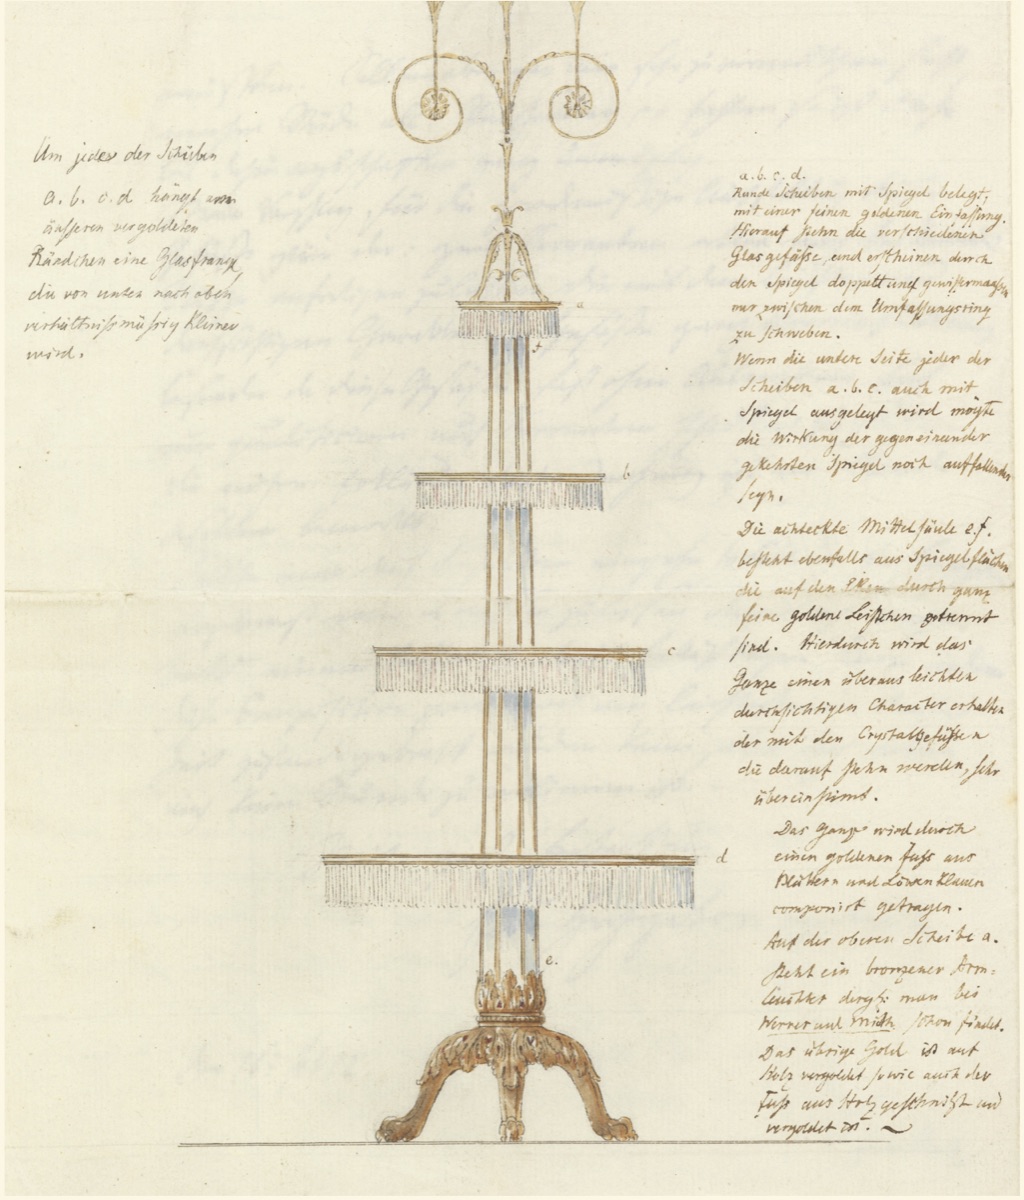 Um jedes der Scheiben
a. b. c. d hängt am
äusseren vergoldeten
Rändchen eine Glasfranze
die von unten nach oben
verhältnissmässig kleiner
wird.
a
f
b
c
d
e.
a. b. c. d.
Runde Scheiben mit Spiegel belegt,
mit einer feinen goldenen Einfassung.
Hierauf stehn die verschiedenen
Glasgefässe, und erscheinen durch
den Spiegel doppelt und gewissermassen
nur zwischen dem Umfassungsring
zu schweben.
Wenn die untere Seite jeder der
Scheiben a. b. c. auch mit
Spiegel ausgelegt wird mögte
die Wirkung der gegeneinander
gekehrten Spiegel noch auffallender
seyn.
Die achteckte Mittelsäule e. f.
besteht ebenfalls aus Spiegelflächen
die auf den Eken durch ganz
feine goldene Leistchen getrennt
sind. Hierdurch wird das
Ganze einen überaus leichten
durchsichtigen Character erhalten
der mit den Crystalgefässen
die darauf stehn werden, sehr
übereinstimt.
Das Ganze wird durch
einen goldenen Fuss aus
Blättern und Löwenklauen
componirt getragen.
Auf der oberen Scheibe a.
steht ein bronzener Arm=
leuchter dergl: man bei
Werner und Mieth schon findet.
Das übrige Gold ist auf
Holz vergoldet sowie auch der
Fuss aus Holz geschnitzt und
vergoldet ist.